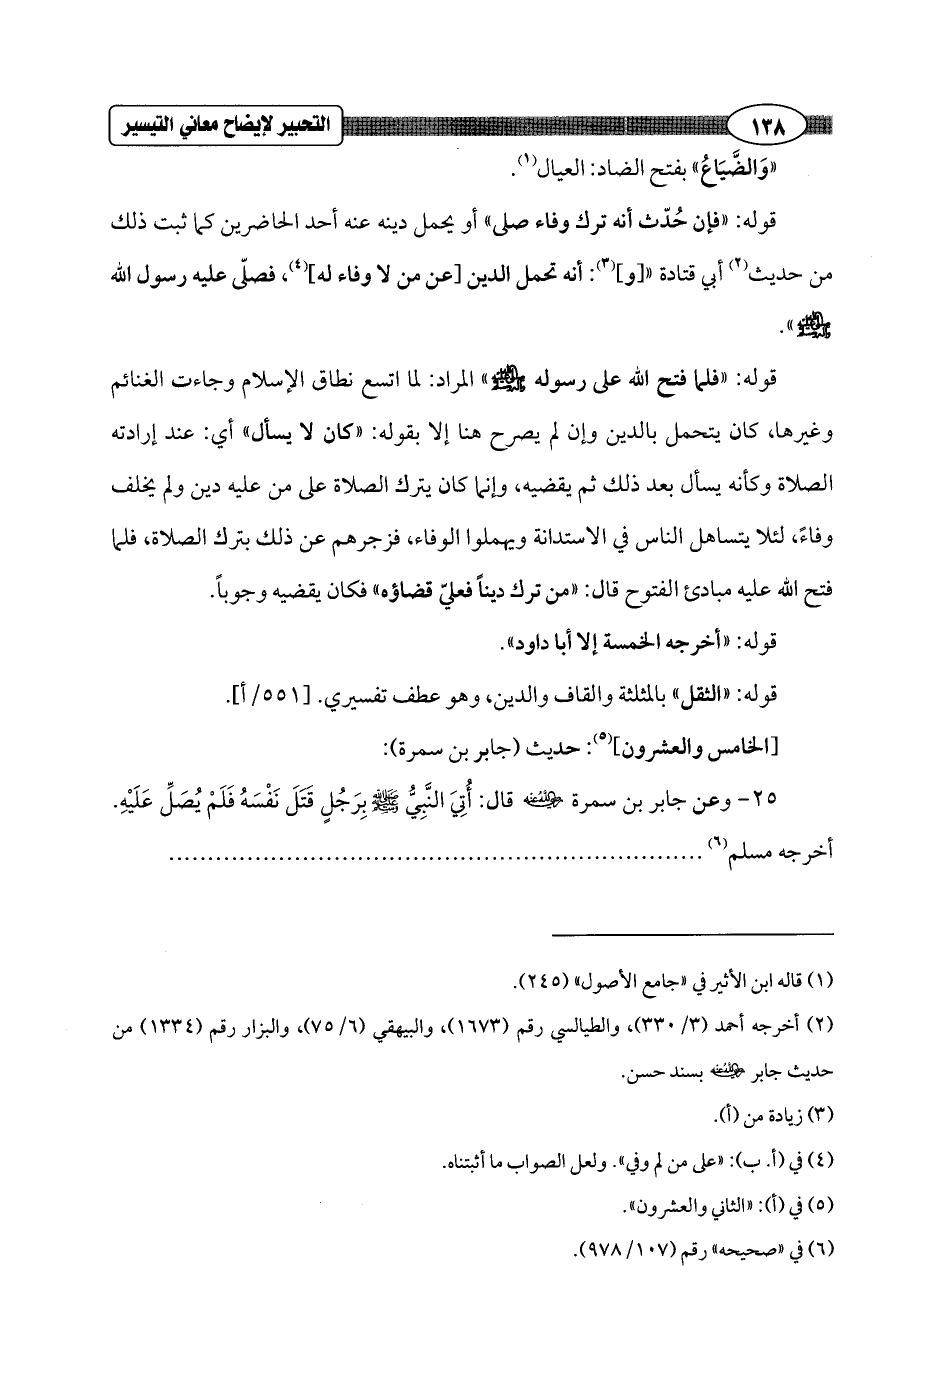 ١٣٨ التحبير لإيضاح معاني التيسير
«وَالضَّيَاعُ» بفتح الضاد: العيال(١).
قوله: «فإن حُدّث أنه ترك وفاء صلى» أو يحمل دينه عنه أحد الحاضرين كما ثبت ذلك
من حديث(٢) أبي قتادة «[و](٣): أنه تحمل الدين [عن من لا وفاء له](٤)، فصلّى عليه رسول الله
ﷺ».
قوله: «فلما فتح الله على رسوله ﷺ» المراد: لما اتسع نطاق الإسلام وجاءت الغنائم
وغيرها، كان يتحمل بالدين وإن لم يصرح هنا إلا بقوله: «كان لا يسأل» أي: عند إرادته
الصلاة وكأنه يسأل بعد ذلك ثم يقضيه، وإنما كان يترك الصلاة على من عليه دين ولم يخلف
وفاءً، لئلا يتساهل الناس في الاستدانة ويهملوا الوفاء، فزجرهم عن ذلك بترك الصلاة، فلما
فتح الله عليه مبادئ الفتوح قال: «من ترك ديناً فعليّ قضاؤه» فكان يقضيه وجوباً.
قوله: «أخرجه الخمسة إلا أبا داود».
قوله: «الثقل» بالمثلثة والقاف والدين، وهو عطف تفسيري. [٥٥١/ أ].
[الخامس والعشرون](٥): حديث (جابر بن سمرة):
٢٥- وعن جابر بن سمرة رضي الله عنه قال: أُتِيَ النَّبِيُّ ﷺ بِرَجُلٍ قَتَلَ نَفْسَهُ فَلَمْ يُصَلِّ عَلَيْهِ.
أخرجه مسلم(٦) ......................................................................
(١) قاله ابن الأثير في «جامع الأصول» (٢٤٥).
(٢) أخرجه أحمد (٣/ ٣٣٠)، والطيالسي رقم (١٦٧٣)، والبيهقي (٦/ ٧٥)، والبزار رقم (١٣٣٤) من
حديث جابر رضي الله عنه بسند حسن.
(٣) زيادة من (أ).
(٤) في (أ. ب): «على من لم وفي». ولعل الصواب ما أثبتناه.
(٥) في (أ): «الثاني والعشرون».
(٦) في «صحيحه» رقم (١٠٧/ ٩٧٨).